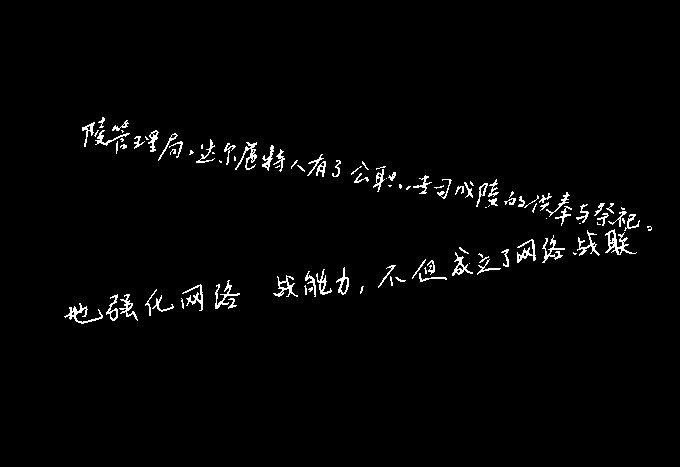 陵管理局，达尔扈特人有了公职，专司成陵的供奉与祭祀。
地强化网络 战能力，不但成立了网络战联